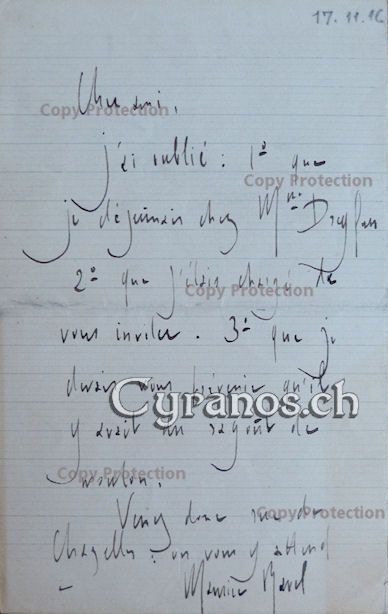 17.11.16
Cher ami,
j'ai oublié : 1º que
je déjeunais chez Mme Dreyfus
2º que j'étais chargé de
vous inviter. 3º que je
devais vous prévenir qu'il
y avait un ragoût de
mouton.
Venez donc rue de
Chazelles : on vous y attend
Maurice Ravel
Copy Protection
Copy Protection
Copy Protection
Cyranos.ch
Copy Protection
Copy Protection